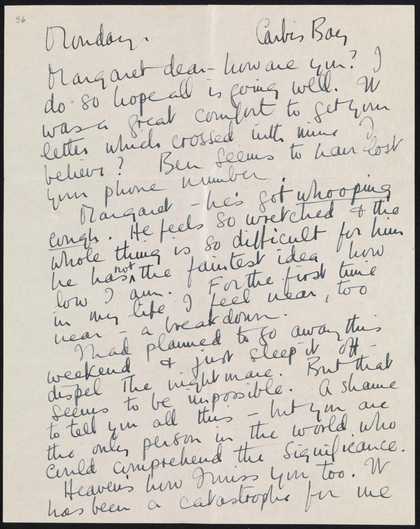 36
Monday. Carbis Bay
Margaret dear – how are you? I
do so hope all is going well. It
was a great comfort to get your
letter which crossed with mine I
believe? Ben seems to have lost
your phone number.
Margaret – he's got whooping
cough. He feels so wretched & the
whole thing is so difficult for him
he has not the faintest idea how
low I am. For the first time
in my life I feel near, too
near – a breakdown.
I had planned to go away this
weekend & just sleep it off –
dispel the nightmare. But that
seems to be impossible. A shame
to tell you all this – but you are
the only person in the world who
could comprehend the significance.
Heavens how I miss you too. It
has been a catastrophe for me